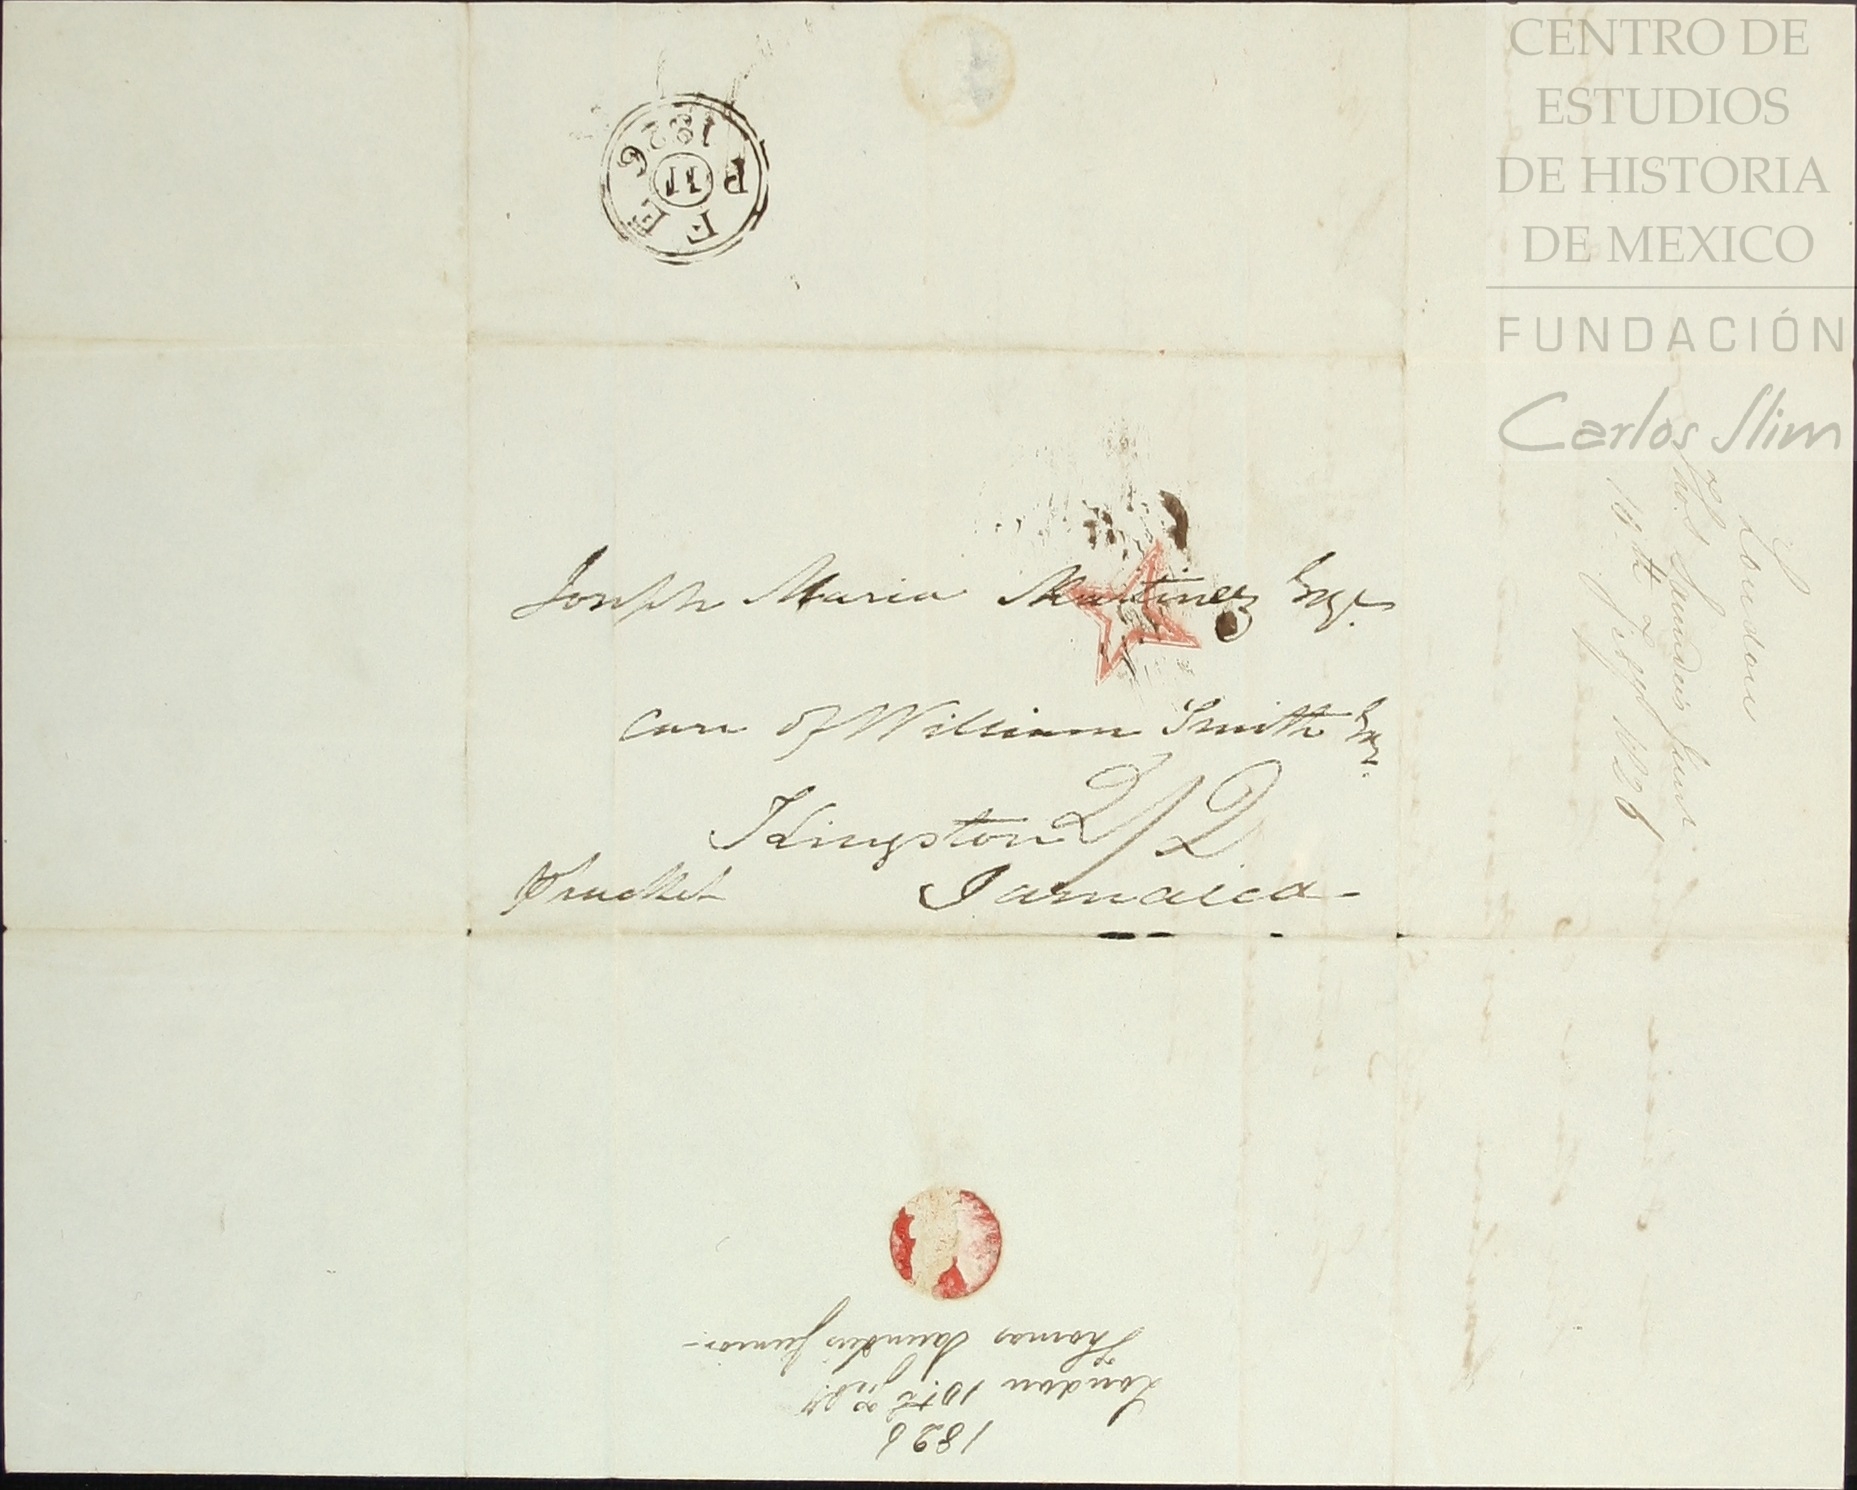 CENTRO DE
ESTUDIOS
DE HISTORIA
DE MEXICO
FUNDACIÓN
Carlos Slim
P
FE
11
1826
Joseph Maria Martinez Esqr
care of William Smith Esqr
Kingston 2/2
Jamaica
London
Thos Saunders Junr
10th Feby 1826
1826
London 10th Feby
Thomas Saunders Junior